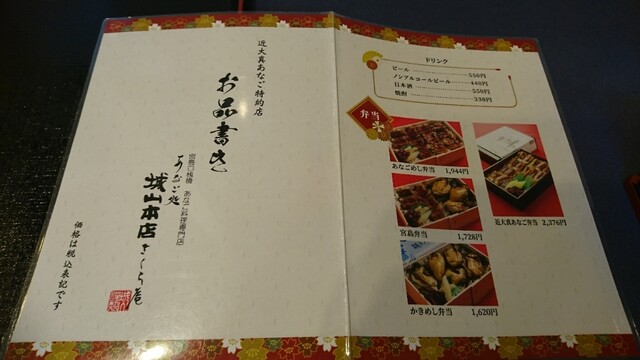 近大真あなご特約店
お品書き
宮島口桟橋 あなご料理専門店
あなご処
城山本店さくら庵
価格は税込表記です
ドリンク
ビール 550円
ノンアルコールビール 440円
日本酒 550円
焼酎 330円
弁当
あなごめし弁当 1,944円
宮島弁当 1,728円
かきめし弁当 1,620円
近大真あなご弁当 2,376円